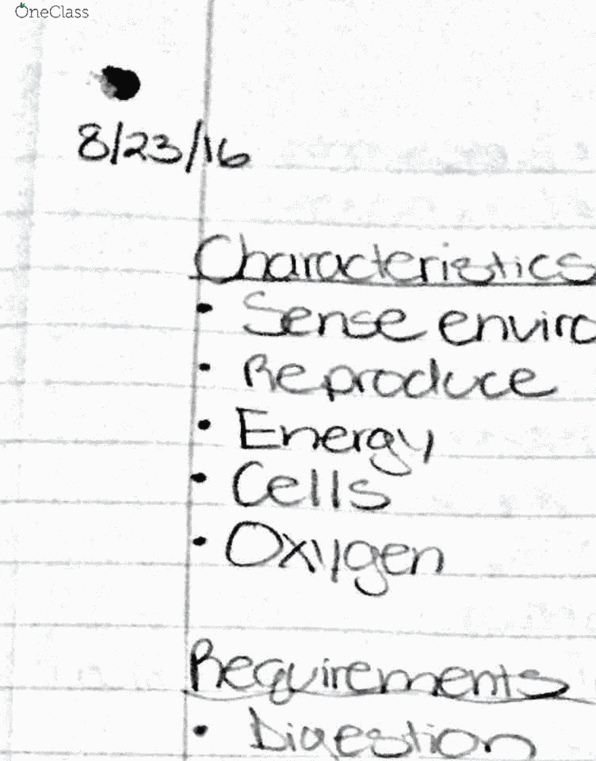 OneClass
8/23/16
Characteristics
• Sense enviro
• Reproduce
• Energy
• Cells
• Oxygen
Requirements
• Digestion